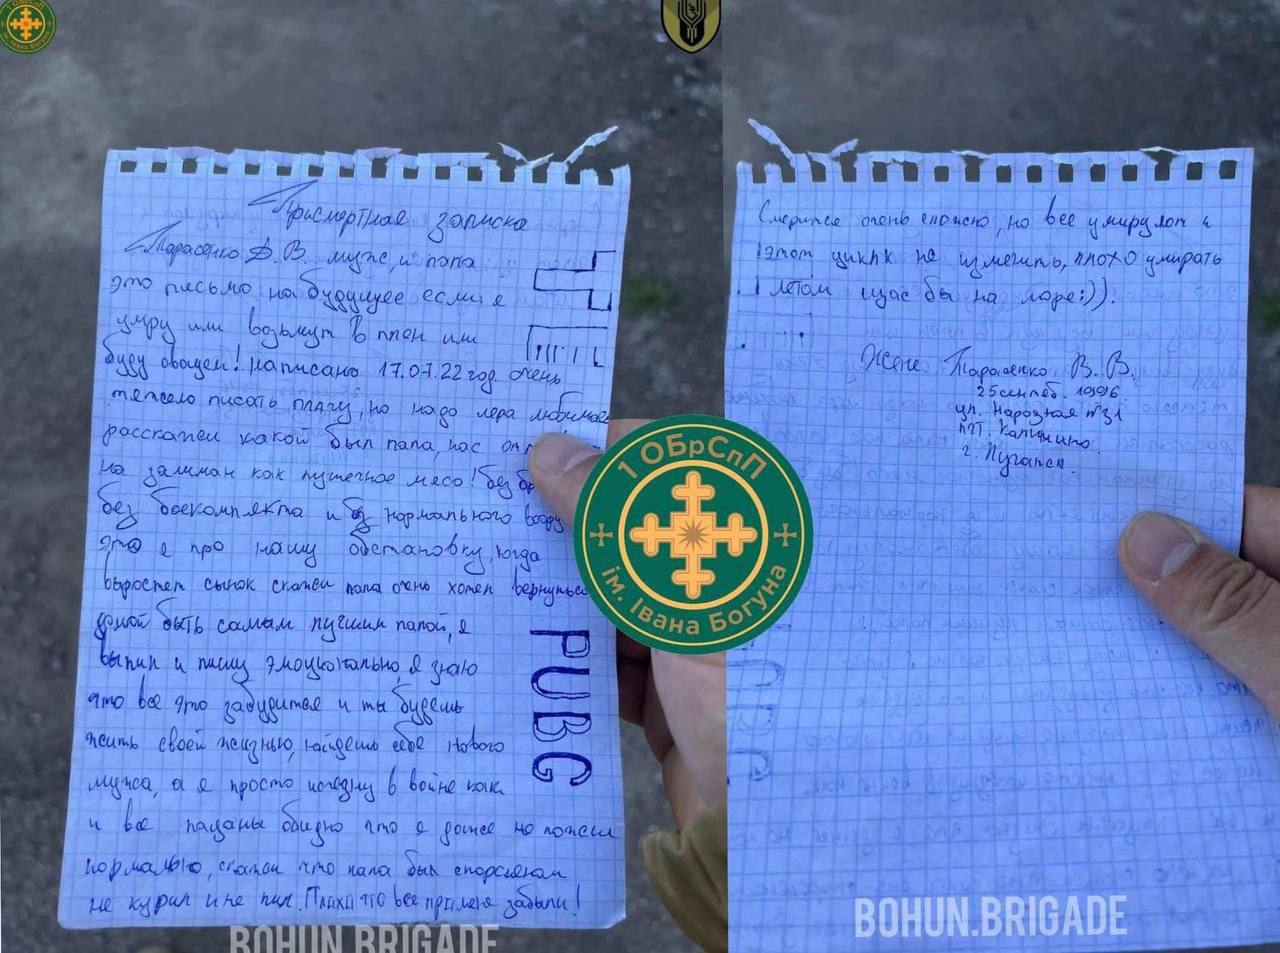 Присмертная записка
Тарасенко Д. В. муж, и папа
это письмо на будущее если я
умру или возьмут в плен или
буду овощем! написано 17.07.22 год. очень
тяжело писать плачу, но надо лера любимая
расскажи какой был папа, нас
на заклан как пушечное мясо! без
без боекомплекта и без нормального
это я про нашу обстановку, когда
выростет сынок скажи папа очень хотел вернуться
домой быть самым лучшим папой, я
выпил и пишу эмоционально, я знаю
что все это забудится и ты будешь
жить своей жизнью, найдешь себе нового
мужа, а я просто исчезну в войне как
и все пацаны обидно что я даже не пожил
нормально, скажи что папа был спорсменом
не курил и не пил. Плоха что все про меня забыли!
PUBG
1 ОБрСпП
ім. Івана Богуна
BOHUN.BRIGADE
очень сложно, но все умирают и
этот цикл не изменить, плохо умирать
летом щас бы на море:)).
Жене Тарасенко В. В.
25 сентеб. 1996
ул. Народная
пгт. Калинино
г. Луганск.
BOHUN.BRIGADE